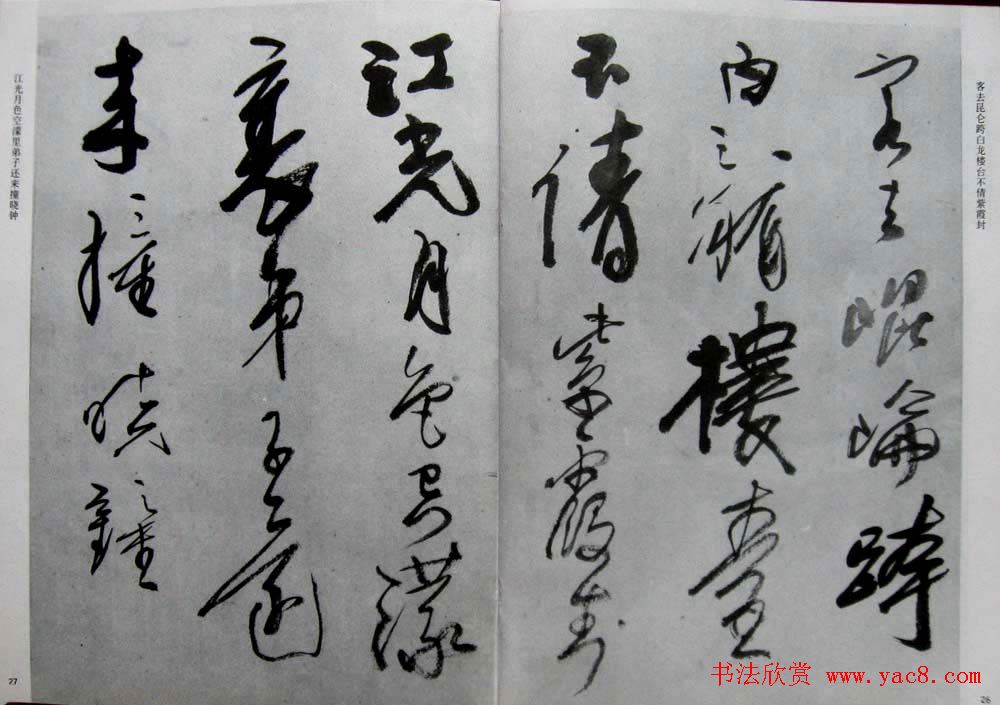 客去崑崙跨
白龍樓臺
不倩紫霞封
江光月色空濛
裏弟子還
來撞曉鐘
客去昆仑跨白龙楼台不倩紫霞封
江光月色空濛里弟子还来撞晓钟
27
26
书法欣赏 www.yac8.com